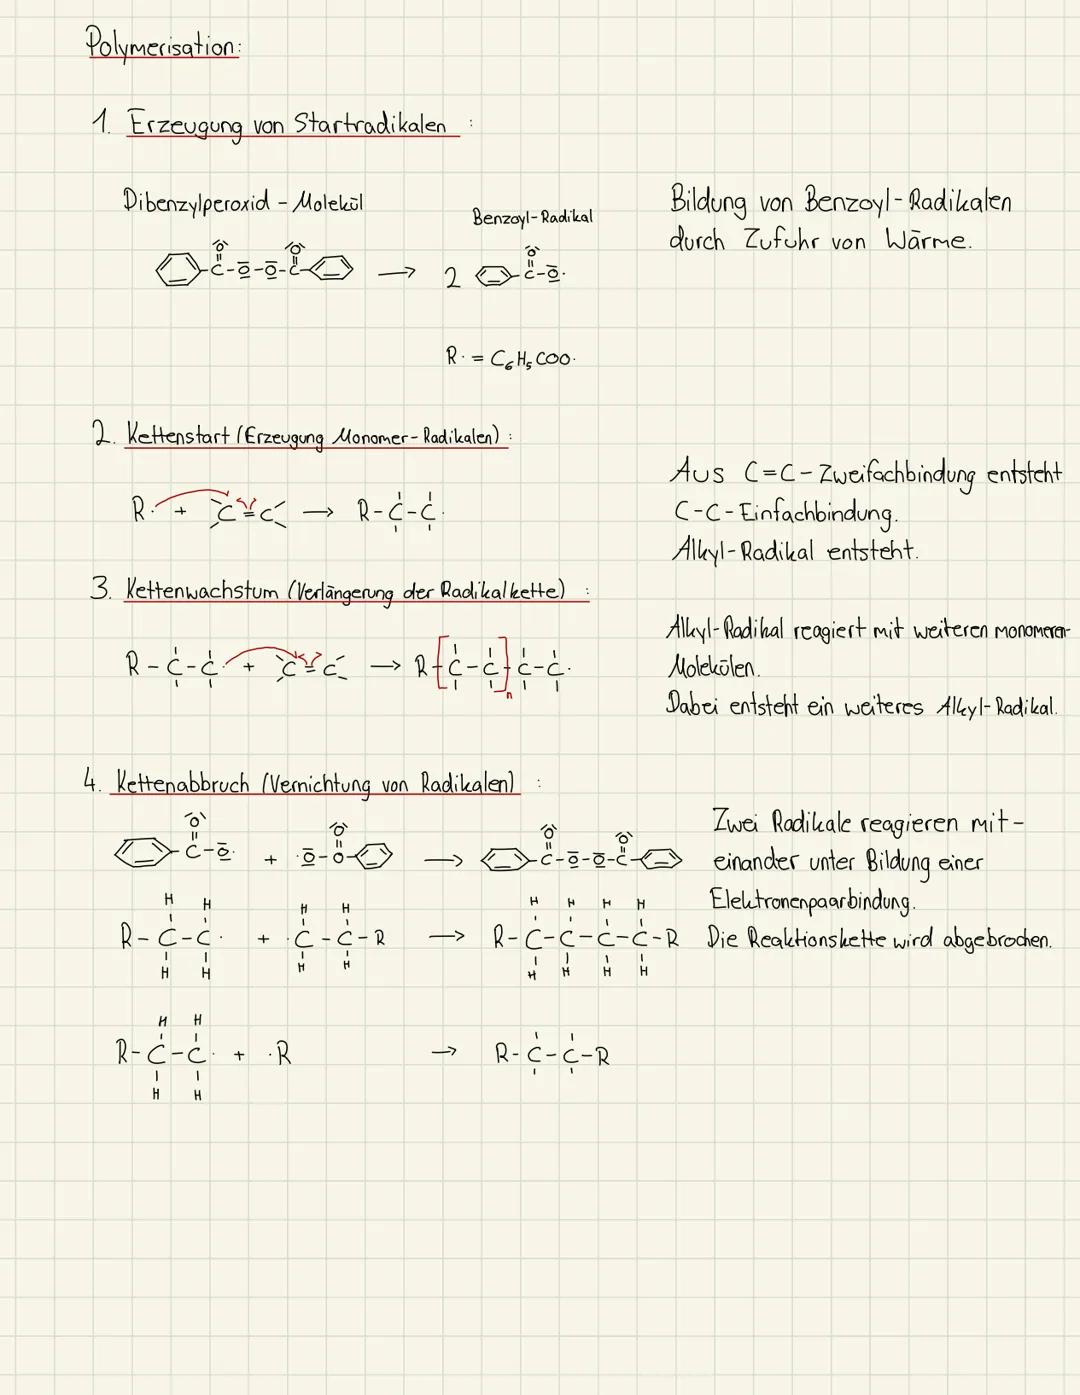 Polymerisation:
1. Erzeugung von Startradikalen :
Dibenzylperoxid - Molekül
Benzoyl-Radikal
Bildung von Benzoyl-Radikalen
durch Zufuhr von Wärme.
C-O-O-C → 2 C-O·
R· = C₆H₅COO·
2. Kettenstart (Erzeugung Monomer-Radikalen) :
R· + C=C → R-C-C·
Aus C=C-Zweifachbindung entsteht
C-C-Einfachbindung.
Alkyl-Radikal entsteht.
3. Kettenwachstum (Verlängerung der Radikalkette) :
R-C-C· + C=C → R-[C-C]n-C-C·
Alkyl-Radikal reagiert mit weiteren monomeren
Molekülen.
Dabei entsteht ein weiteres Alkyl-Radikal.
4. Kettenabbruch (Vernichtung von Radikalen) :
O O O O
C-O· + ·O-O → C-O-O-C
Zwei Radikale reagieren mit-
einander unter Bildung einer
Elektronenpaarbindung.
Die Reaktionskette wird abgebrochen.
H H H H H H H H
R-C-C· + ·C-C-R → R-C-C-C-C-R
H H H H H H H H
H H
R-C-C· + ·R → R-C-C-R
H H